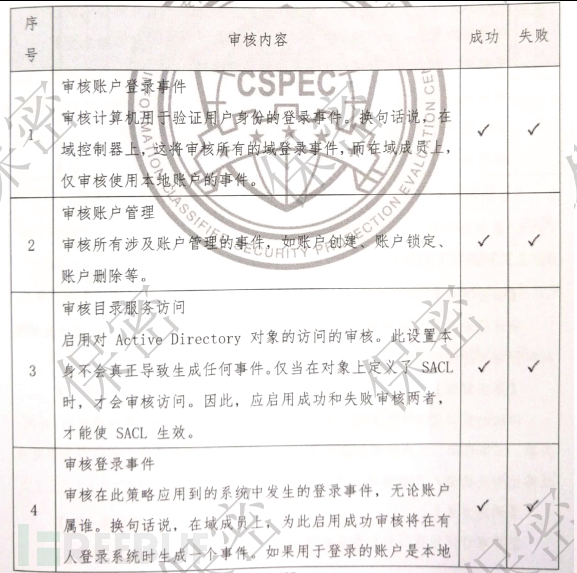 序号 审核内容 成功 失败
审核账户登录事件
审核计算机用于验证用户身份的登录事件。换句话说，在
1 域控制器上，这将审核所有的域登录事件，而在域成员上， ✓ ✓
仅审核使用本地账户的事件。
审核账户管理
2 审核所有涉及账户管理的事件，如账户创建、账户锁定、 ✓ ✓
账户删除等。
审核目录服务访问
启用对 Active Directory 对象的访问的审核。此设置本
3 身不会真正导致生成任何事件。仅当在对象上定义了 SACL ✓ ✓
时，才会审核访问。因此，应启用成功和失败审核两者，
才能使 SACL 生效。
审核登录事件
审核在此策略应用到的系统中发生的登录事件，无论账户
4 属谁。换句话说，在域成员上，为此启用成功审核将在有 ✓ ✓
人登录系统时生成一个事件。如果用于登录的账户是本地
CSPEC
CLASSIFIED SECURITY PROTECTION EVALUATION CE
保密
保密
保密
保密
保密